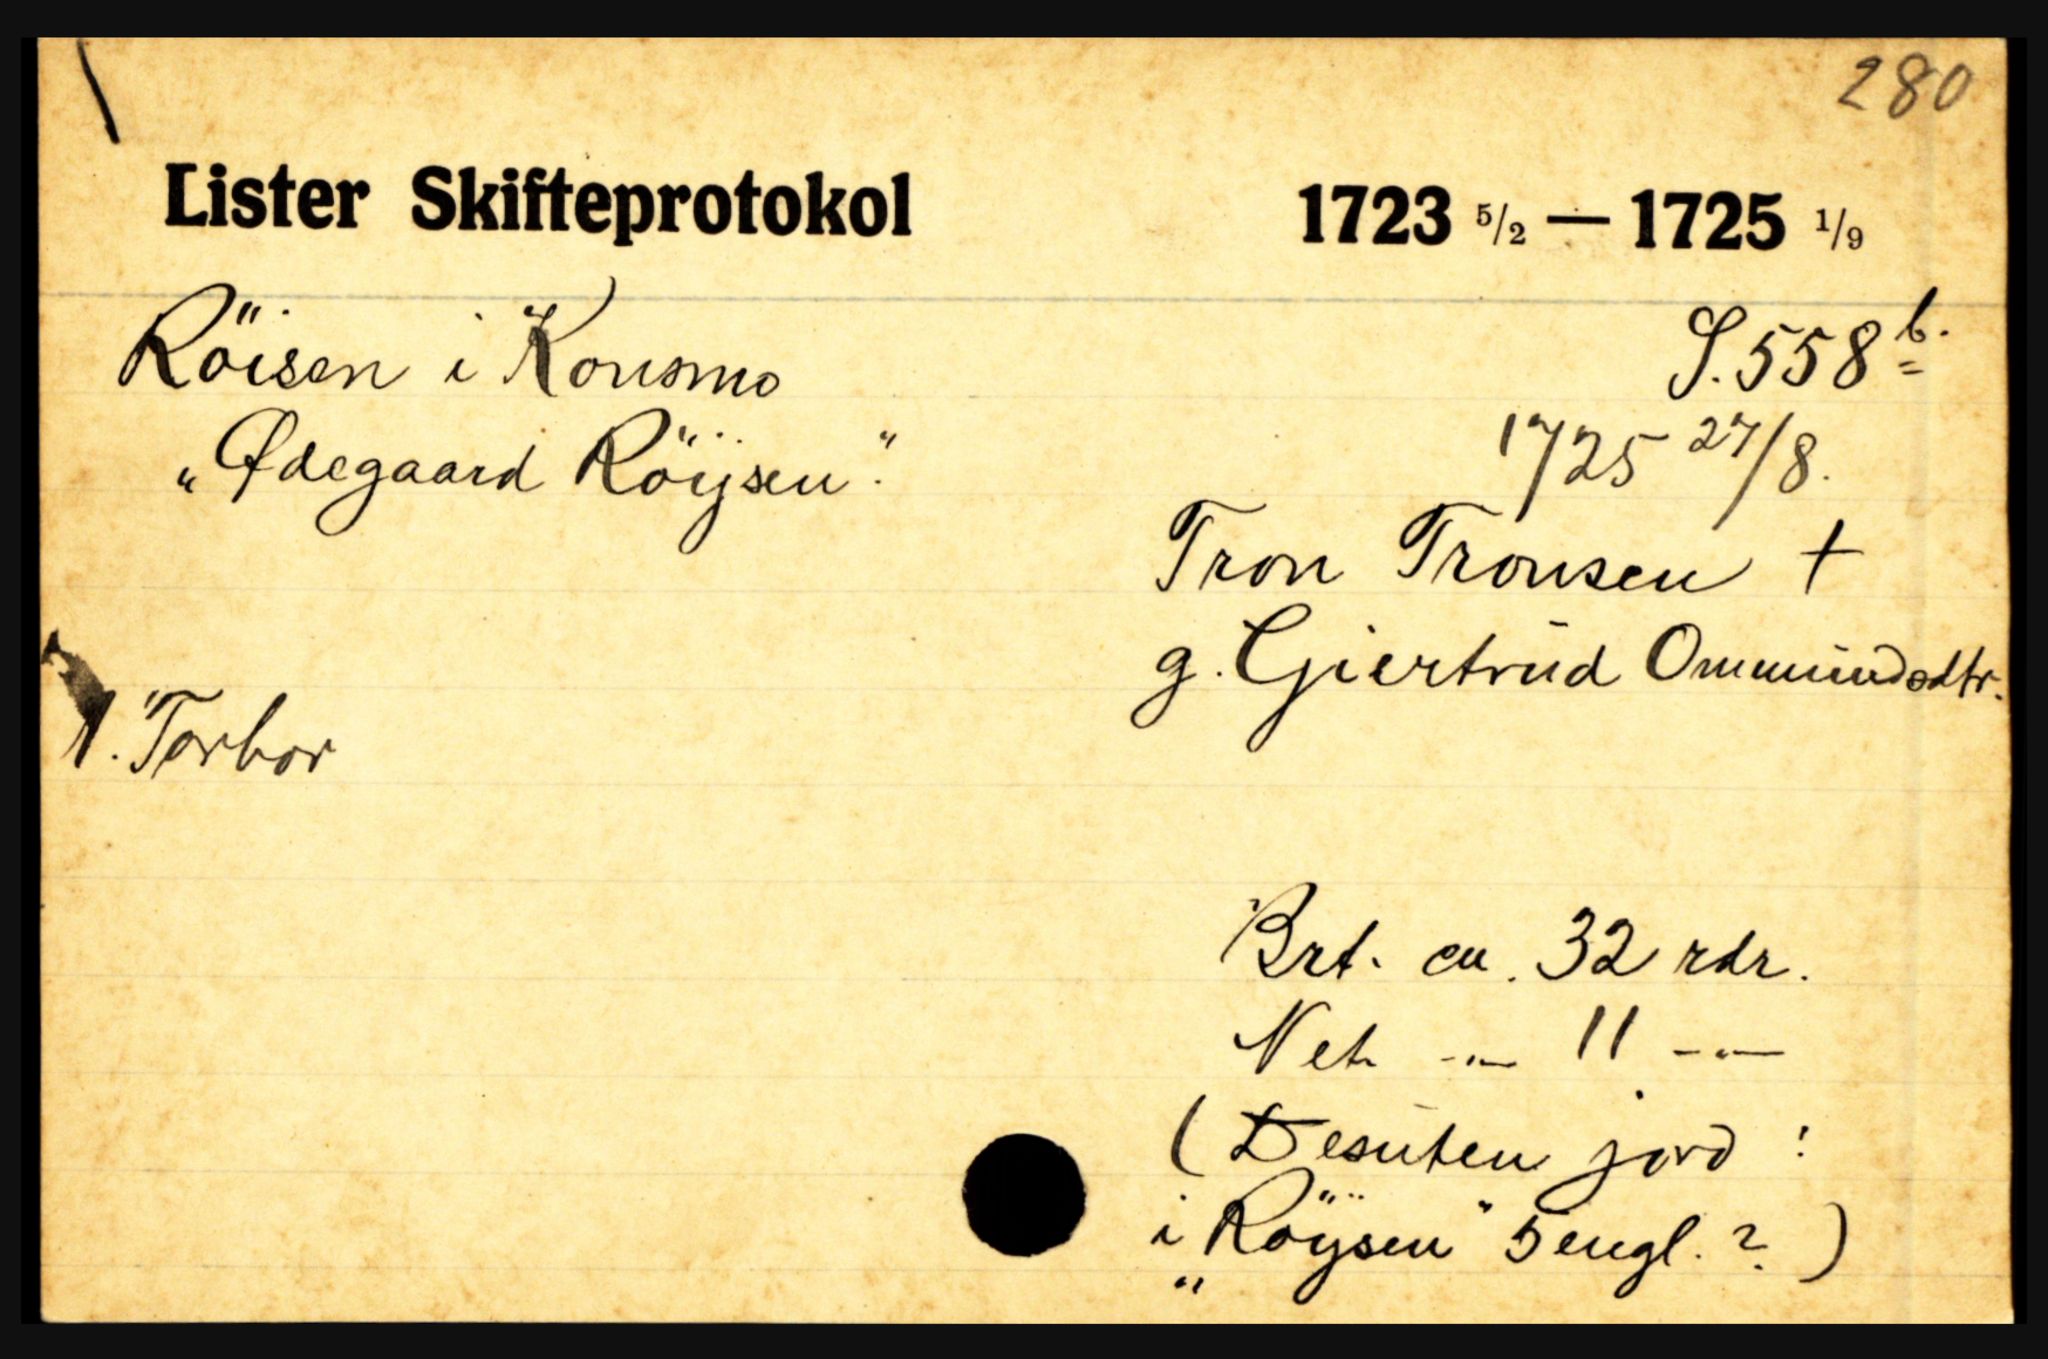 280
Lister Skifteprotokol 1723 5/2 — 1725 1/9
Röisen i Konsmo S. 558 b.
„Ødegaard Röÿsen“. 1725 27/8.
Tron Tronsen †
g. Giertrud Ommundsdtr.
1. Torbor
Brt. ca. 32 rdr.
Net -"- 11 -"-
(Desuten jord :
i „Röÿsen“ 5 engl. ? )